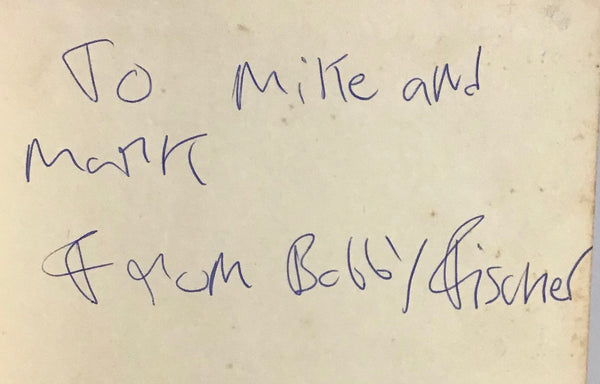 To Mike and
Mark
From Bobby Fischer